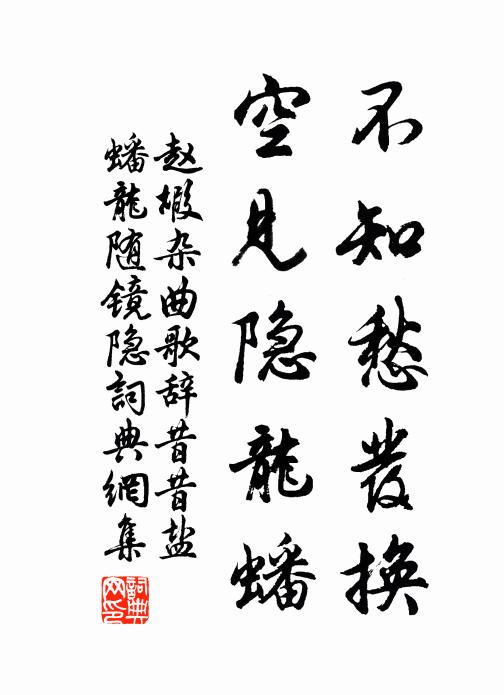 不知愁發换
空见隐龍蟠
赵嘏杂曲歌辞昔昔盐
蟠龍随镜隐詞典網集
詞典网印